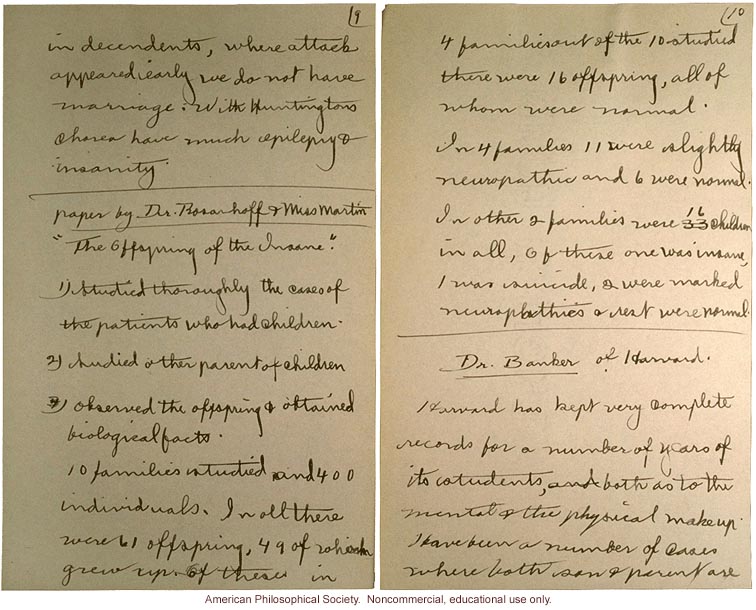 9
in decendents, where attack
appeared early we do not have
marriage. With Huntingtons
Chorea have much epilepsy &
insanity.
paper by Dr. Rosanhoff & Miss Martin
"The Offspring of the Insane".
1) Studied thoroughly the cases of
the patients who had children.
2) Studied other parent of children
3) observed the offspring & obtained
biological facts.
10 families studied and 400
individuals. In all there
were 61 offspring, 49 of
grew up. Of these in
10
4 families out of the 10 studied
there were 16 offspring, all of
whom were normal.
In 4 families 11 were slightly
neuropathic and 6 were normal.
In other 2 families were 33 16 children
in all, Of these one was insane,
1 was suicide, 2 were marked
neuropathics & rest were normal.
Dr. Banker of Harvard.
Harvard has kept very complete
records for a number of years of
its students, and both as to the
mental & the physical make up.
Have been a number of cases
where both son & parent are
American Philosophical Society. Noncommercial, educational use only.